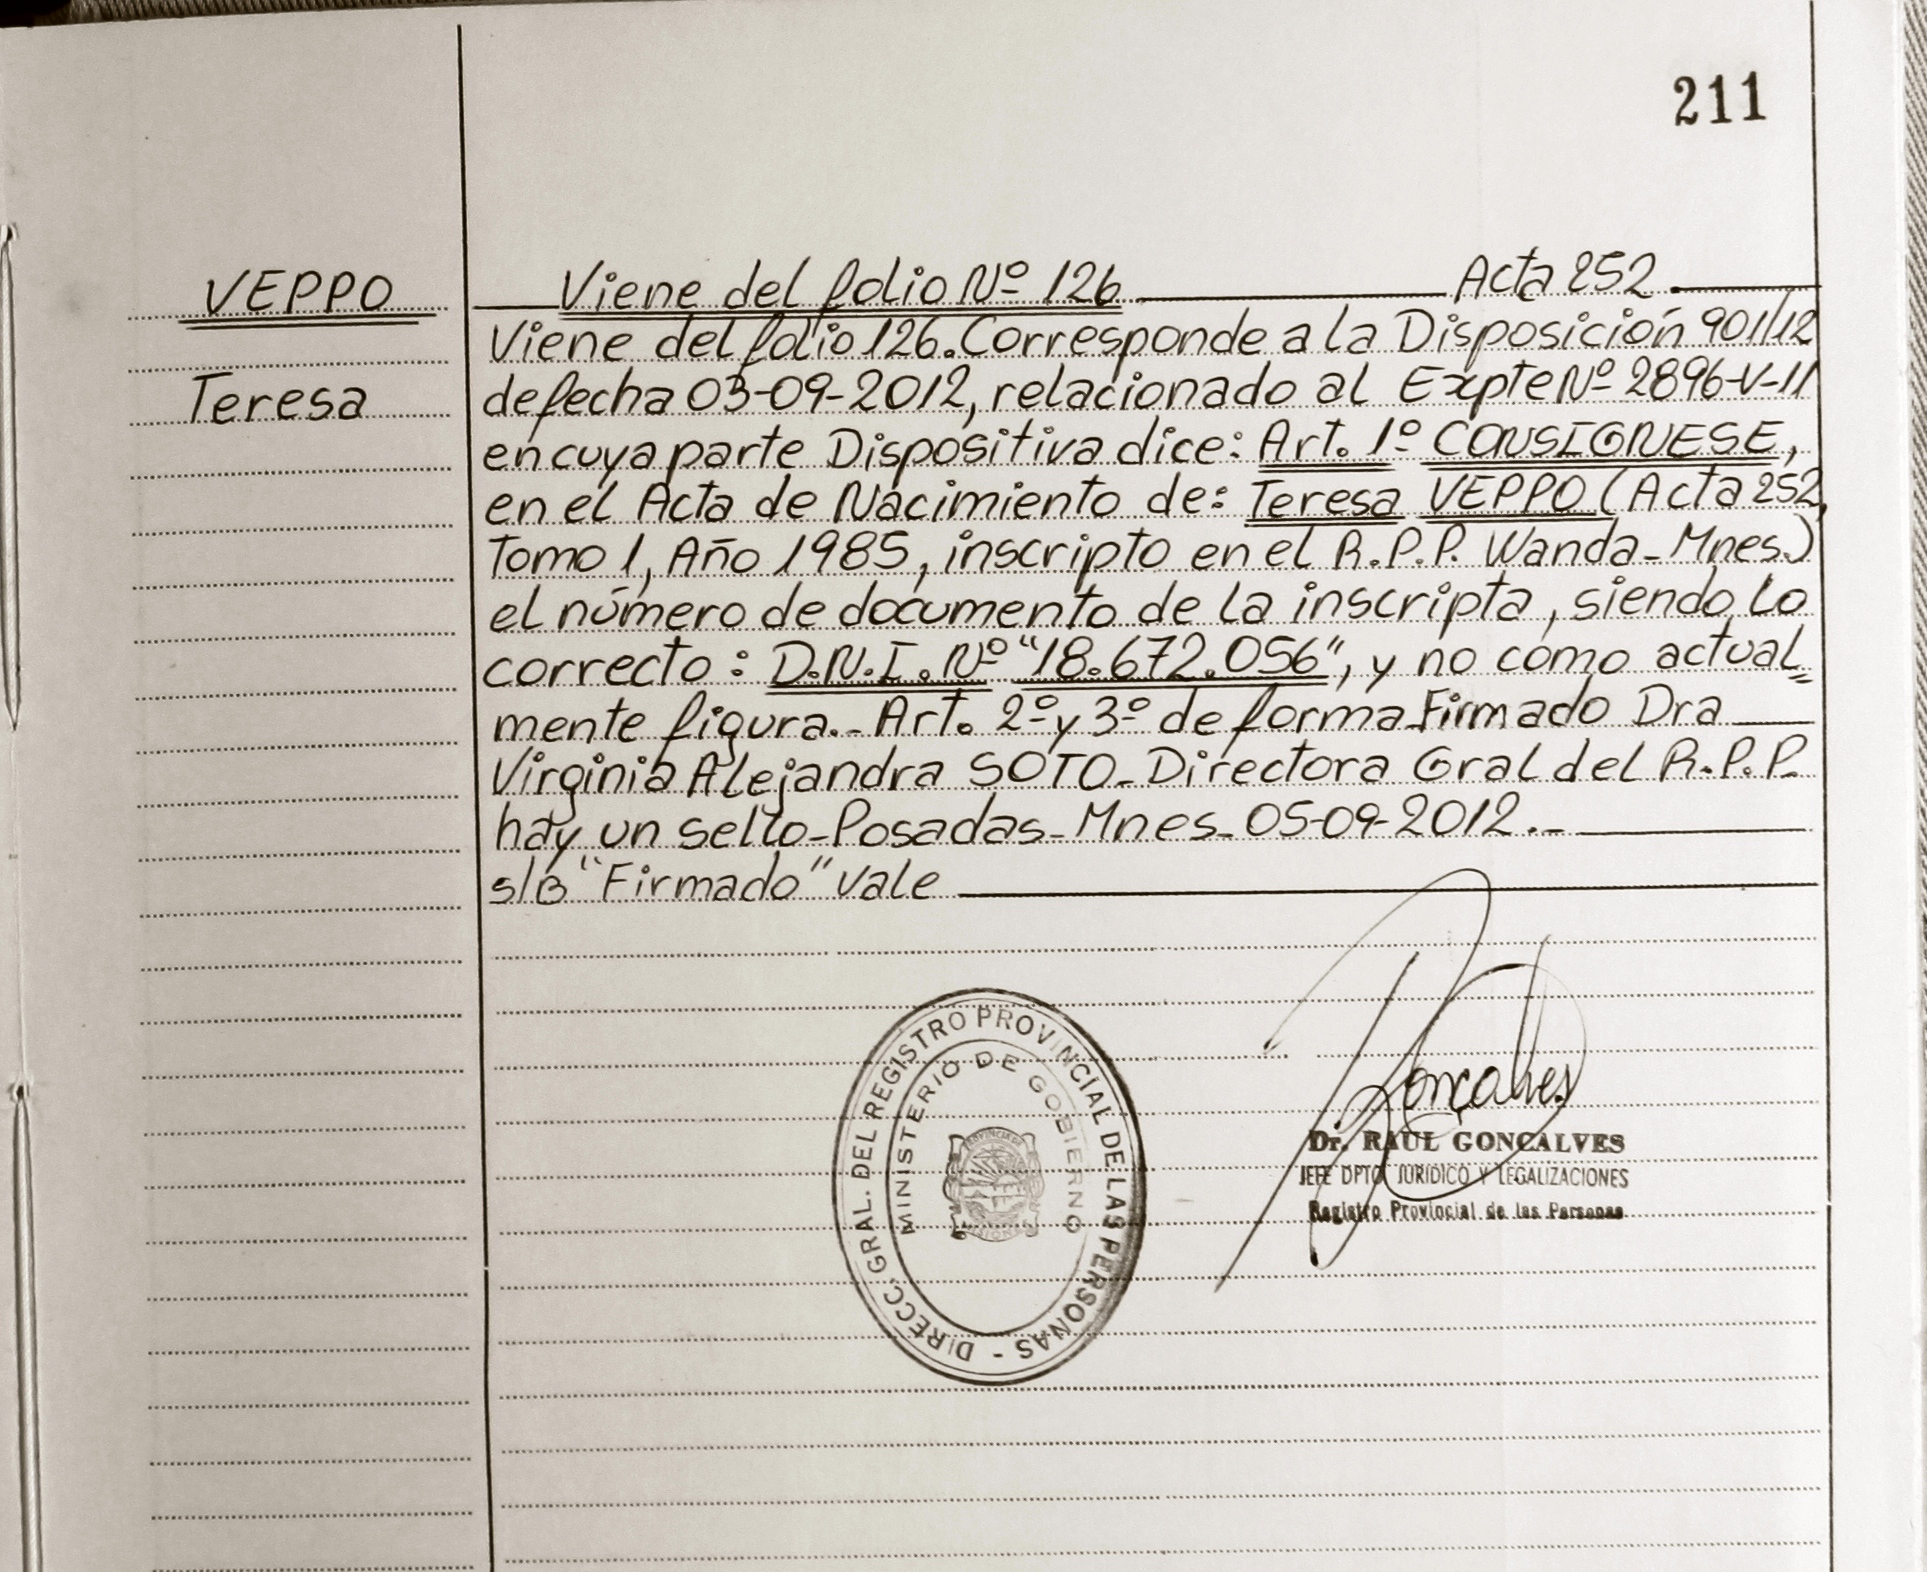 211
VEPPO
Teresa
Viene del folio Nº 126 Acta 252
Viene del folio 126. Corresponde a la Disposición 901/12
de fecha 03-09-2012, relacionado al Expte Nº 2896-V-11
en cuya parte Dispositiva dice: Art. 1º CONSIGNESE,
en el Acta de Nacimiento de: Teresa VEPPO (Acta 252,
Tomo 1, Año 1985, inscripto en el R.P.P. Wanda-Mnes.)
el número de documento de la inscripta, siendo lo
correcto: D.N.I. Nº "18.672.056", y no como actual=
mente figura.- Art. 2º y 3º de forma Firmado Dra
Virginia Alejandra SOTO-Directora Gral del R.P.P.
hay un sello-Posadas-Mnes-05-09-2012.-
s/B "Firmado" Vale
DIRECC. GRAL. DEL REGISTRO PROVINCIAL DE LAS PERSONAS -
MINISTERIO DE GOBIERNO
PROVINCIA DE
MISIONES
Gonçalves
Dr. RAUL GONCALVES
JEFE DPTO JURIDICO Y LEGALIZACIONES
Registro Provincial de las Personas